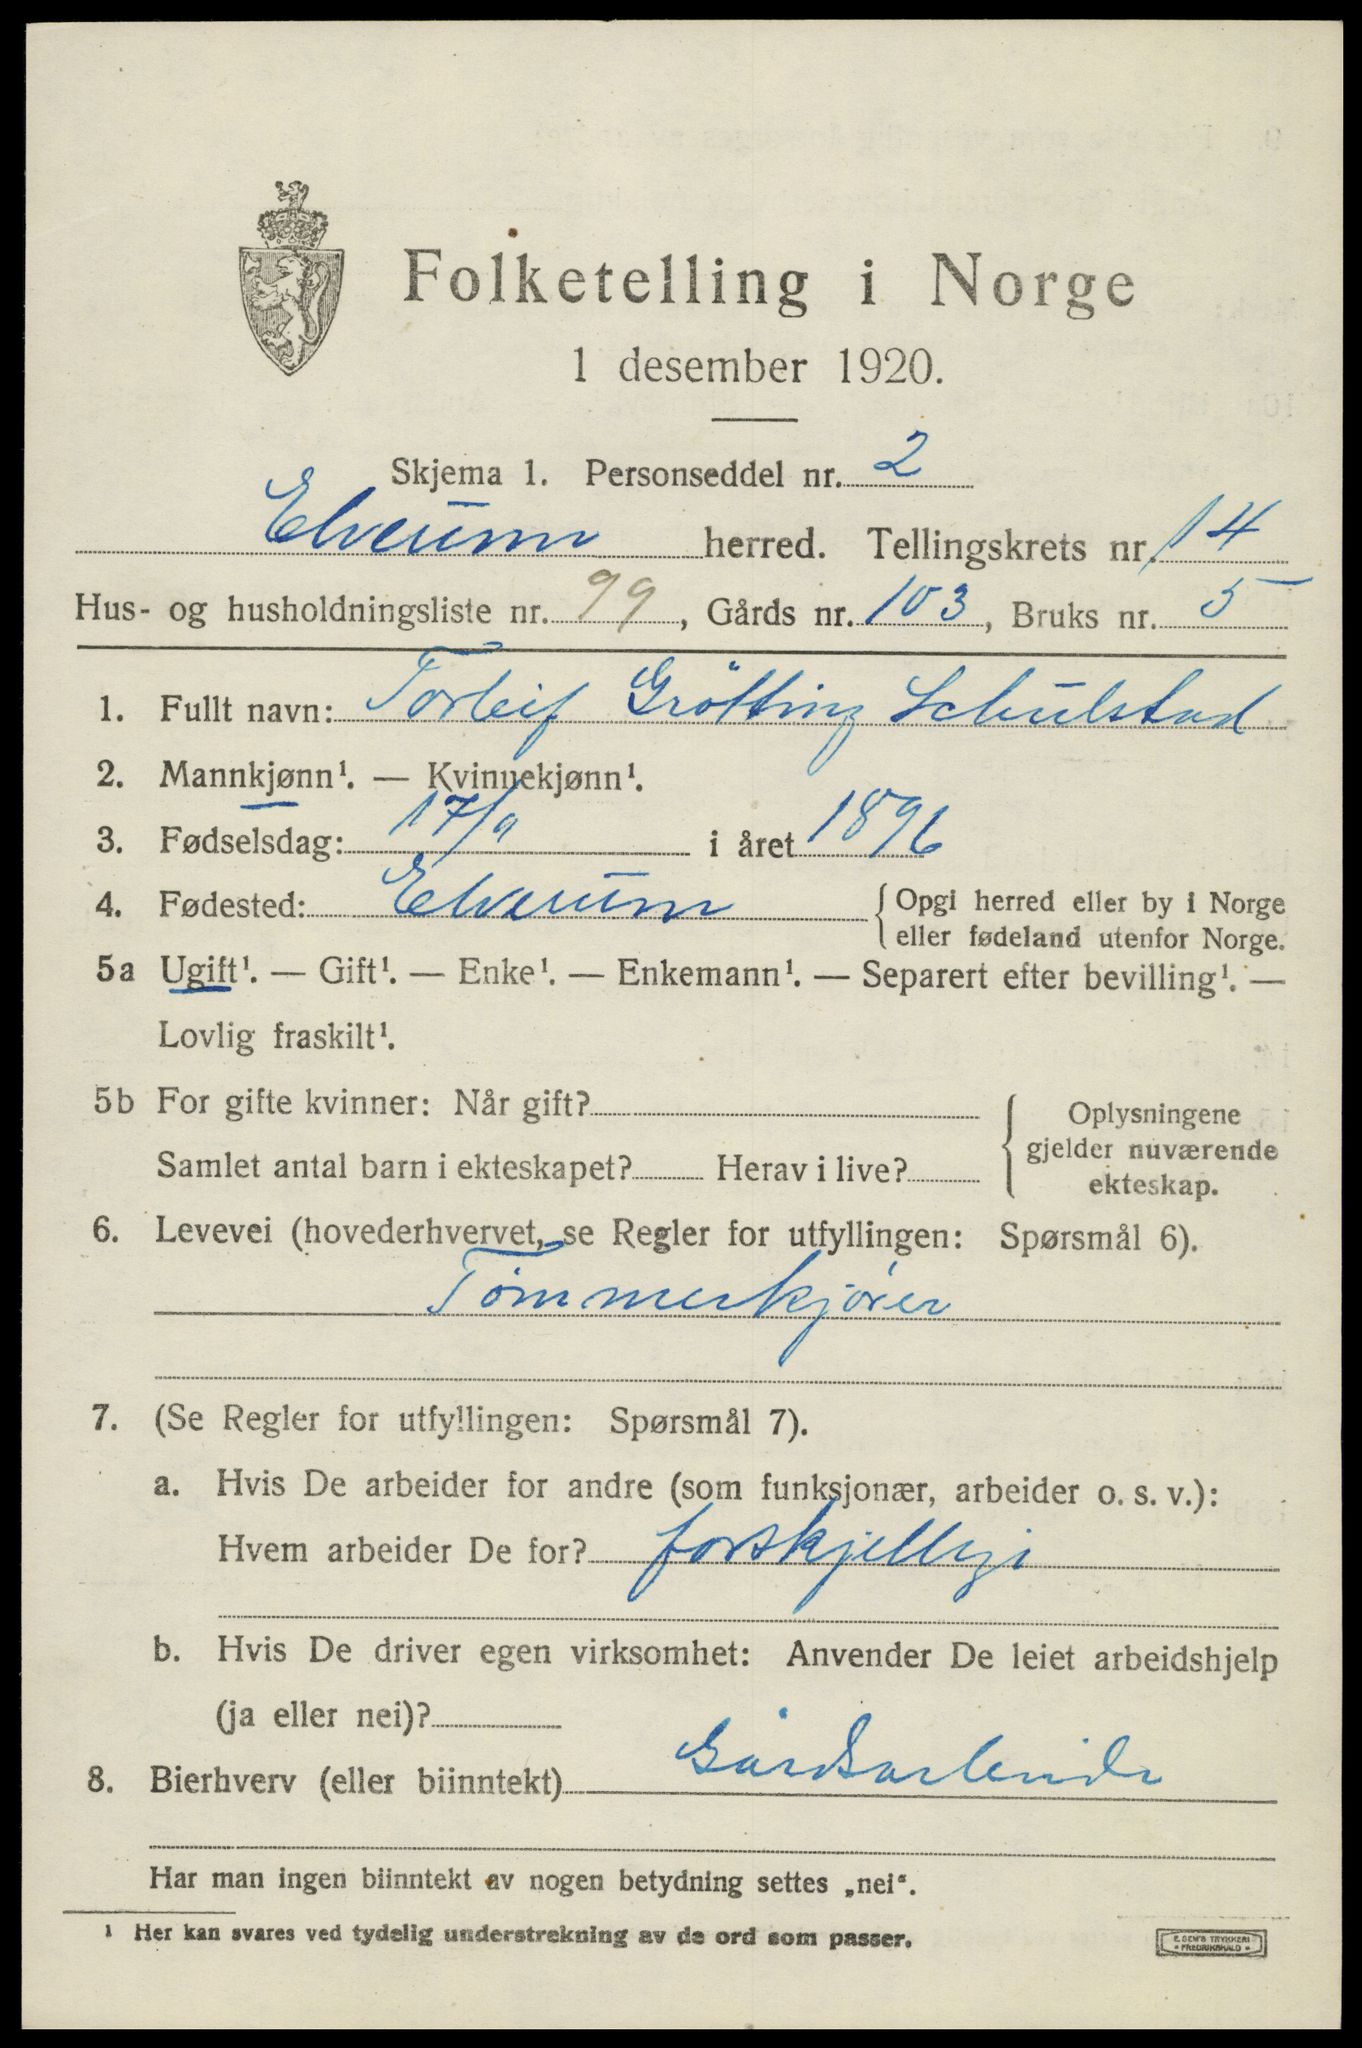 Folketelling i Norge
1 desember 1920.
Skjema 1. Personseddel nr. 2
Elverum herred. Tellingskrets nr. 14
Hus- og husholdningsliste nr. 99, Gårds nr. 103, Bruks nr. 5
1. Fullt navn: Torleif Grötting Schulstad
2. Mannkjønn¹. — Kvinnekjønn¹.
3. Fødselsdag: 17/9 i året 1896
4. Fødested: Elverum { Opgi herred eller by i Norge
eller fødeland utenfor Norge.
5a Ugift¹. — Gift¹. — Enke¹. — Enkemann¹. — Separert efter bevilling¹. —
Lovlig fraskilt¹.
5b For gifte kvinner: Når gift? { Oplysningene
gjelder nuværende
Samlet antal barn i ekteskapet? Herav i live?
ekteskap.
6. Levevei (hovederhvervet, se Regler for utfyllingen: Spørsmål 6).
Tömmerkjörer
7. (Se Regler for utfyllingen: Spørsmål 7).
a. Hvis De arbeider for andre (som funksjonær, arbeider o. s. v.):
Hvem arbeider De for? forskjellige
b. Hvis De driver egen virksomhet: Anvender De leiet arbeidshjelp
(ja eller nei)?
8. Bierhverv (eller biinntekt) Gårdsarbeide
Har man ingen biinntekt av nogen betydning settes „nei“.
¹ Her kan svares ved tydelig understrekning av de ord som passer.
E. SEM'S TRYKKERI
• FREDRIKSHALD •